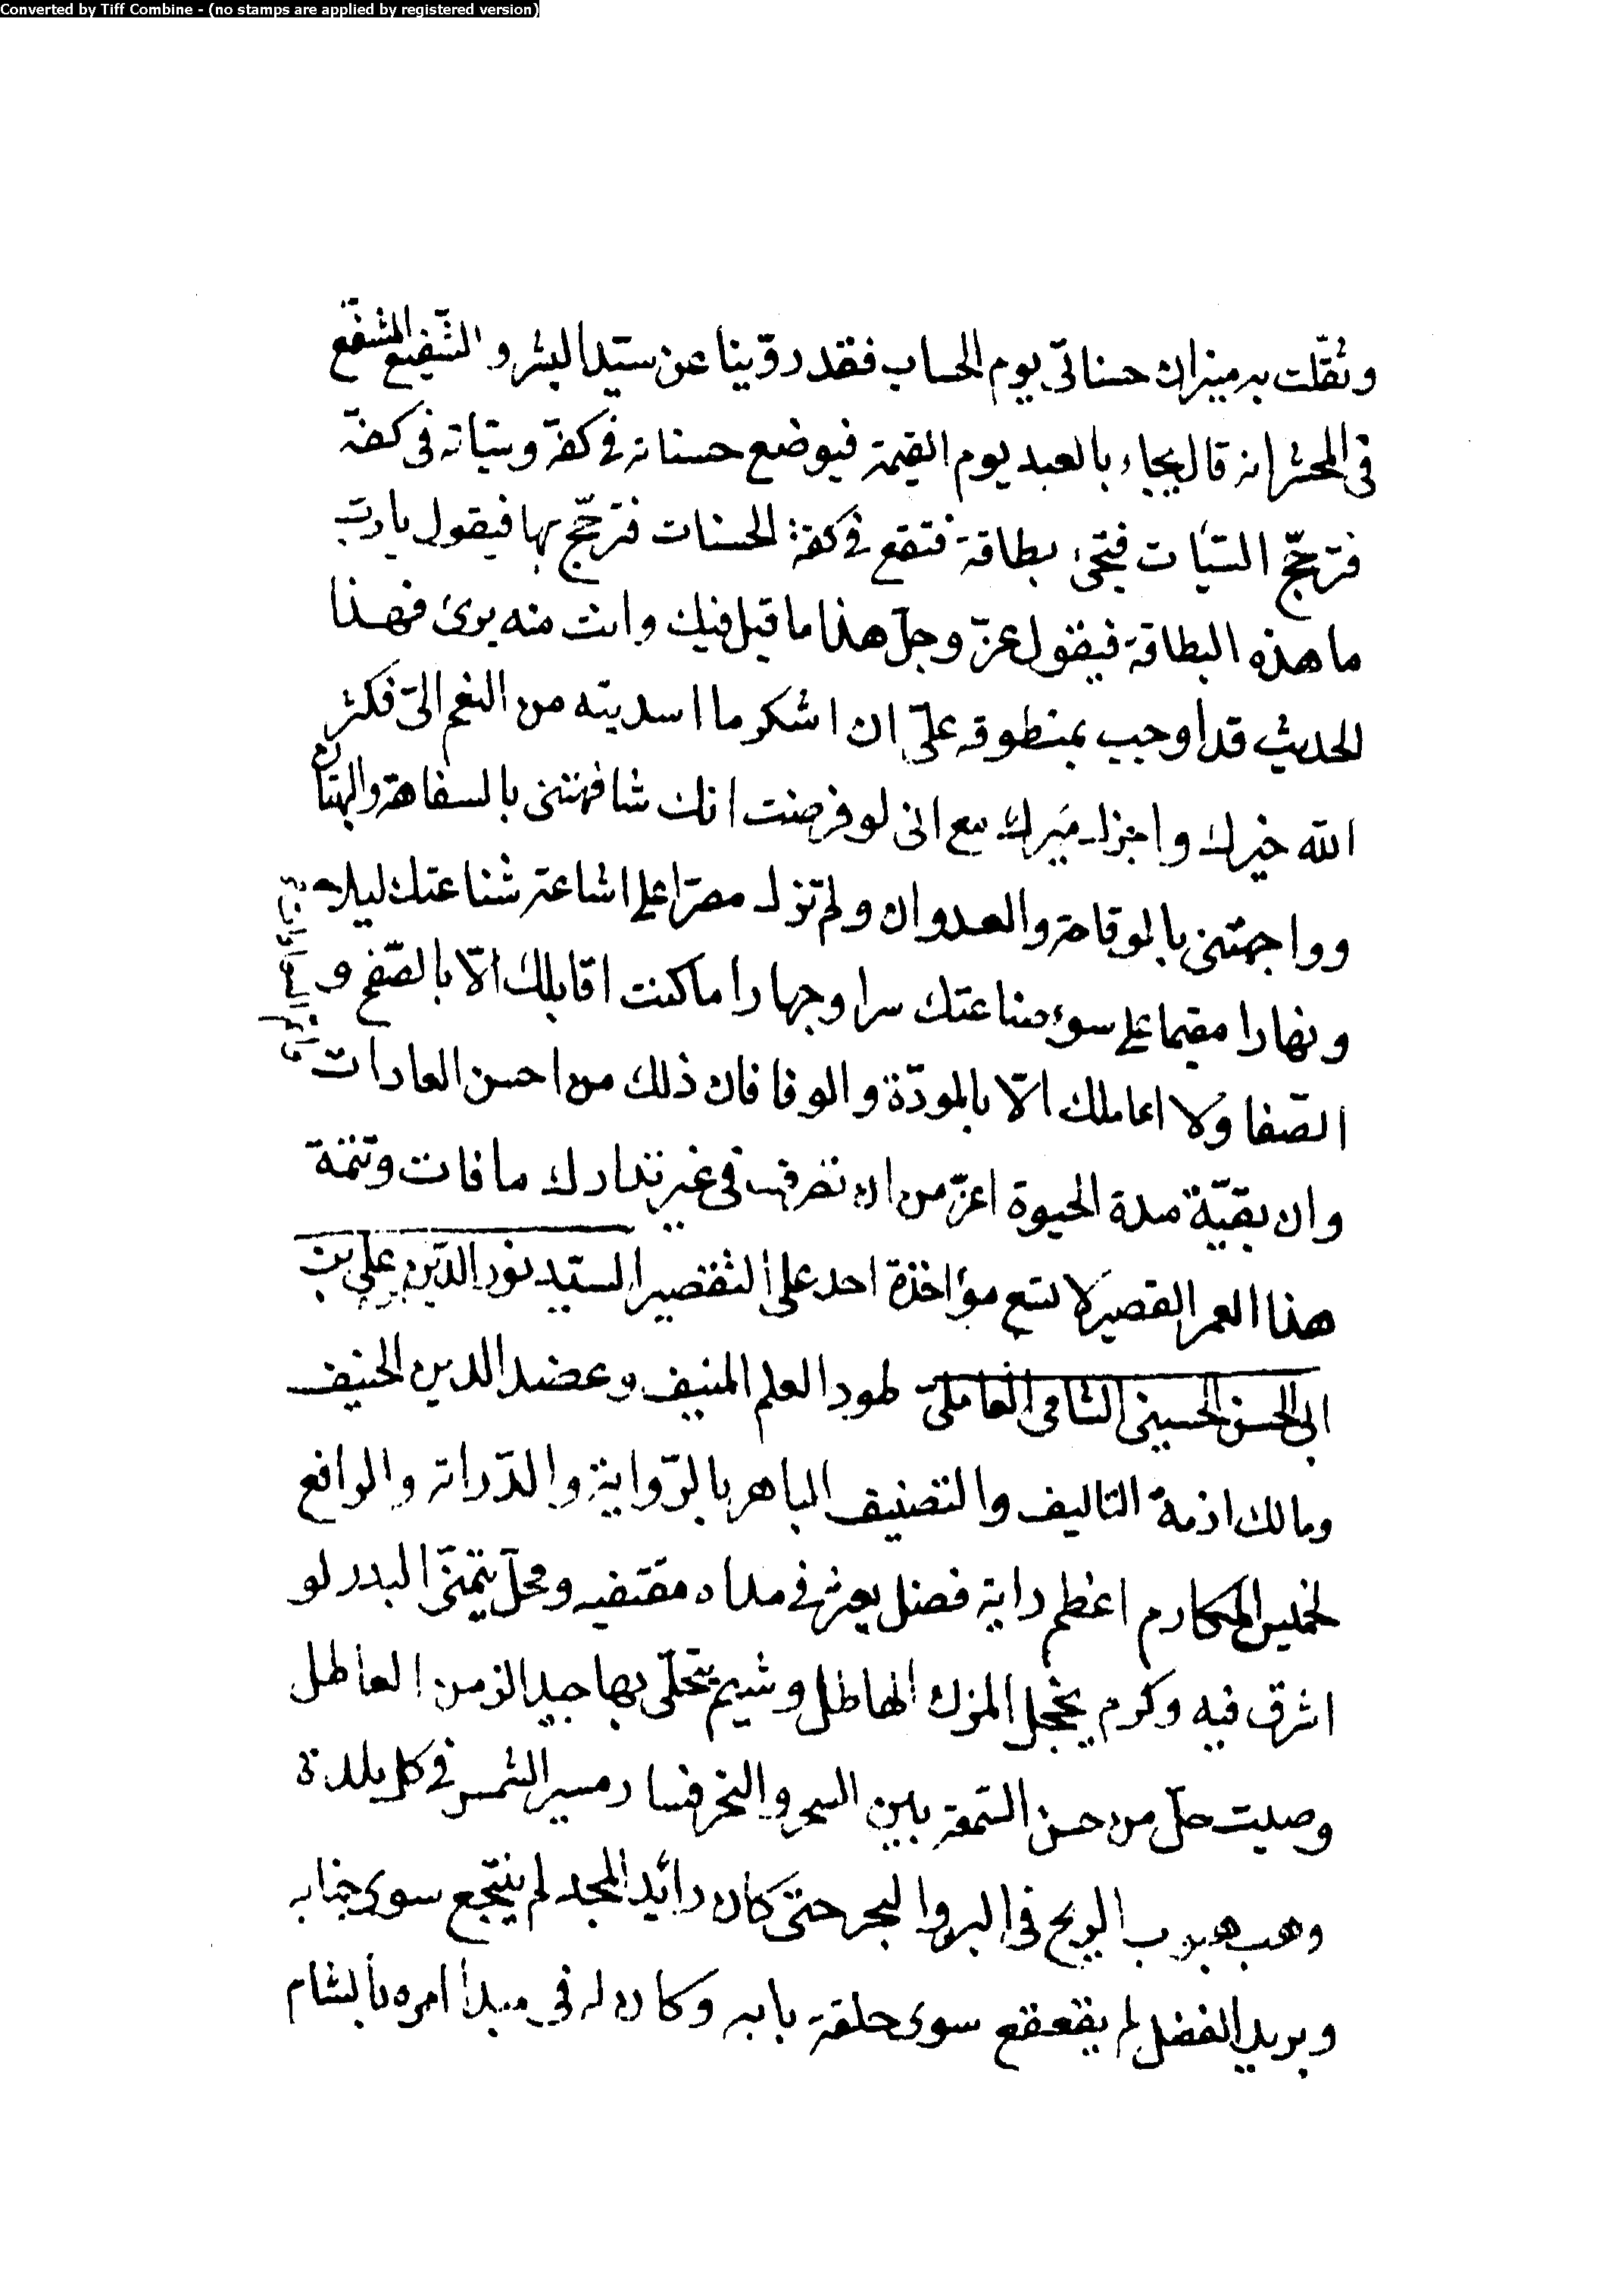 Converted by Tiff Combine - (no stamps are applied by registered version)
وثقّلت به ميزان حسناتى يوم الحساب فقد روّينا عن سيّد البشر و الشّفيع المشفّع
فى المحشر انه قال يجاء بالعبد يوم القيمة فيوضع حسناته فى كفة وسيئاته فى كفّة
فترجّح السّيئات فتجئ بطاقة فتقع فى كفة الحسنات فترجّح بها فيقول يا ربّ
ما هذه البطاقة فيقول عزّ وجلّ هذا ما قيل فيك وانت منه برئ فهذا
الحديث قد اوجب بمنطوقه علىّ ان اشكر ما اسديته من النعم الىّ فكثر
الله خيرك واجزل ميرك مع انى لو فرضت انك شافهتنى بالسفاهة والبهتان
وواجهتنى بالوقاحة والعدوان ولم تزل مصرّا على اشاعة شناعتك ليلا
ونهارا مقيما على سوء صناعتك سرا وجهارا ما كنت اقابلك الّا بالصّفح و
الصّفا ولا اعاملك الّا بالمودّة والوفا فان ذلك من احسن العادات
وان بقيّة مدة الحيوة اعزّ من ان تصرف فى غير تدارك ما فات وتتمّة
هذا العمر القصير لا تسع مؤاخذة احد على التقصير السيّد نور الدّين على بن
ابى الحسن الحسينى الشامى العاملى طود العلم المنيف وعضد الدين الحنيف
ومالك ازمة التاليف والتصنيف الباهر بالرّواية والدّراية والرافع
لخميس المكارم اعظم راية فضل يعثر فى مداه مقتفيه ومحلّ يتمنّى البدر لو
اشرق فيه وكرم يخجل المزن الهاطل وشيم يتحلّى بها جيد الزمن العاطل
وصيت حلّ من حسن السّمعة بين السحر والنحر فسار مسير الشمس فى كل بلدة
وهب هبوب الريح فى البر والبحر حتى كان رائد المجد لم ينتجع سوى جنابه
وبريد الفضل لم يقعقع سوى حلقة بابه وكان له فى مبدأ امره بالشام